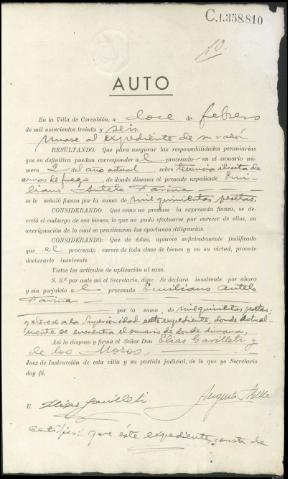 C.1.358.810
10.
AUTO
En la Villa de Corcubión, a doce de febrero
de mil novecientos treinta y seis
RESULTANDO: Que para asegurar las responsabilidades pecuniarias
que en definitiva puedan corresponder al procesado en el sumario nú-
mero 2 del año actual, sobre tenencia ilícita de
armas de fuego, de donde dimana el presente expediente Emi-
liano Antelo Fariña
se le señaló fianza por la suma de mil quinientas pesetas
CONSIDERANDO: Que como no prestase la expresada fianza, se de-
cretó el embargo de sus bienes, lo que no pudo efectuarse por carecer de ellos, en
averiguación de lo cual se practicaron las oportunas diligencias.
CONSIDERANDO: Que de éstas, aparece suficientemente justificado
que el procesado carece de toda clase de bienes y en su virtud, procede
declararlo insolvente
Vistos los artículos de aplicación al caso.
S. S.ª por ante mí el Secretario, dijo: Se declara insolvente por ahora
y sin perjuicio al procesado Emiliano Antelo
Fariña
por la suma de mil quinientas pesetas
Así lo dispuso y firma el Señor Don Elías Garilleti y
de los Mozos,
Juez de Instrucción de esta villa y su partido judicial, de lo que yo Secretario
doy fé.
E. Elías Garilleti
Certifico que este expediente consta de